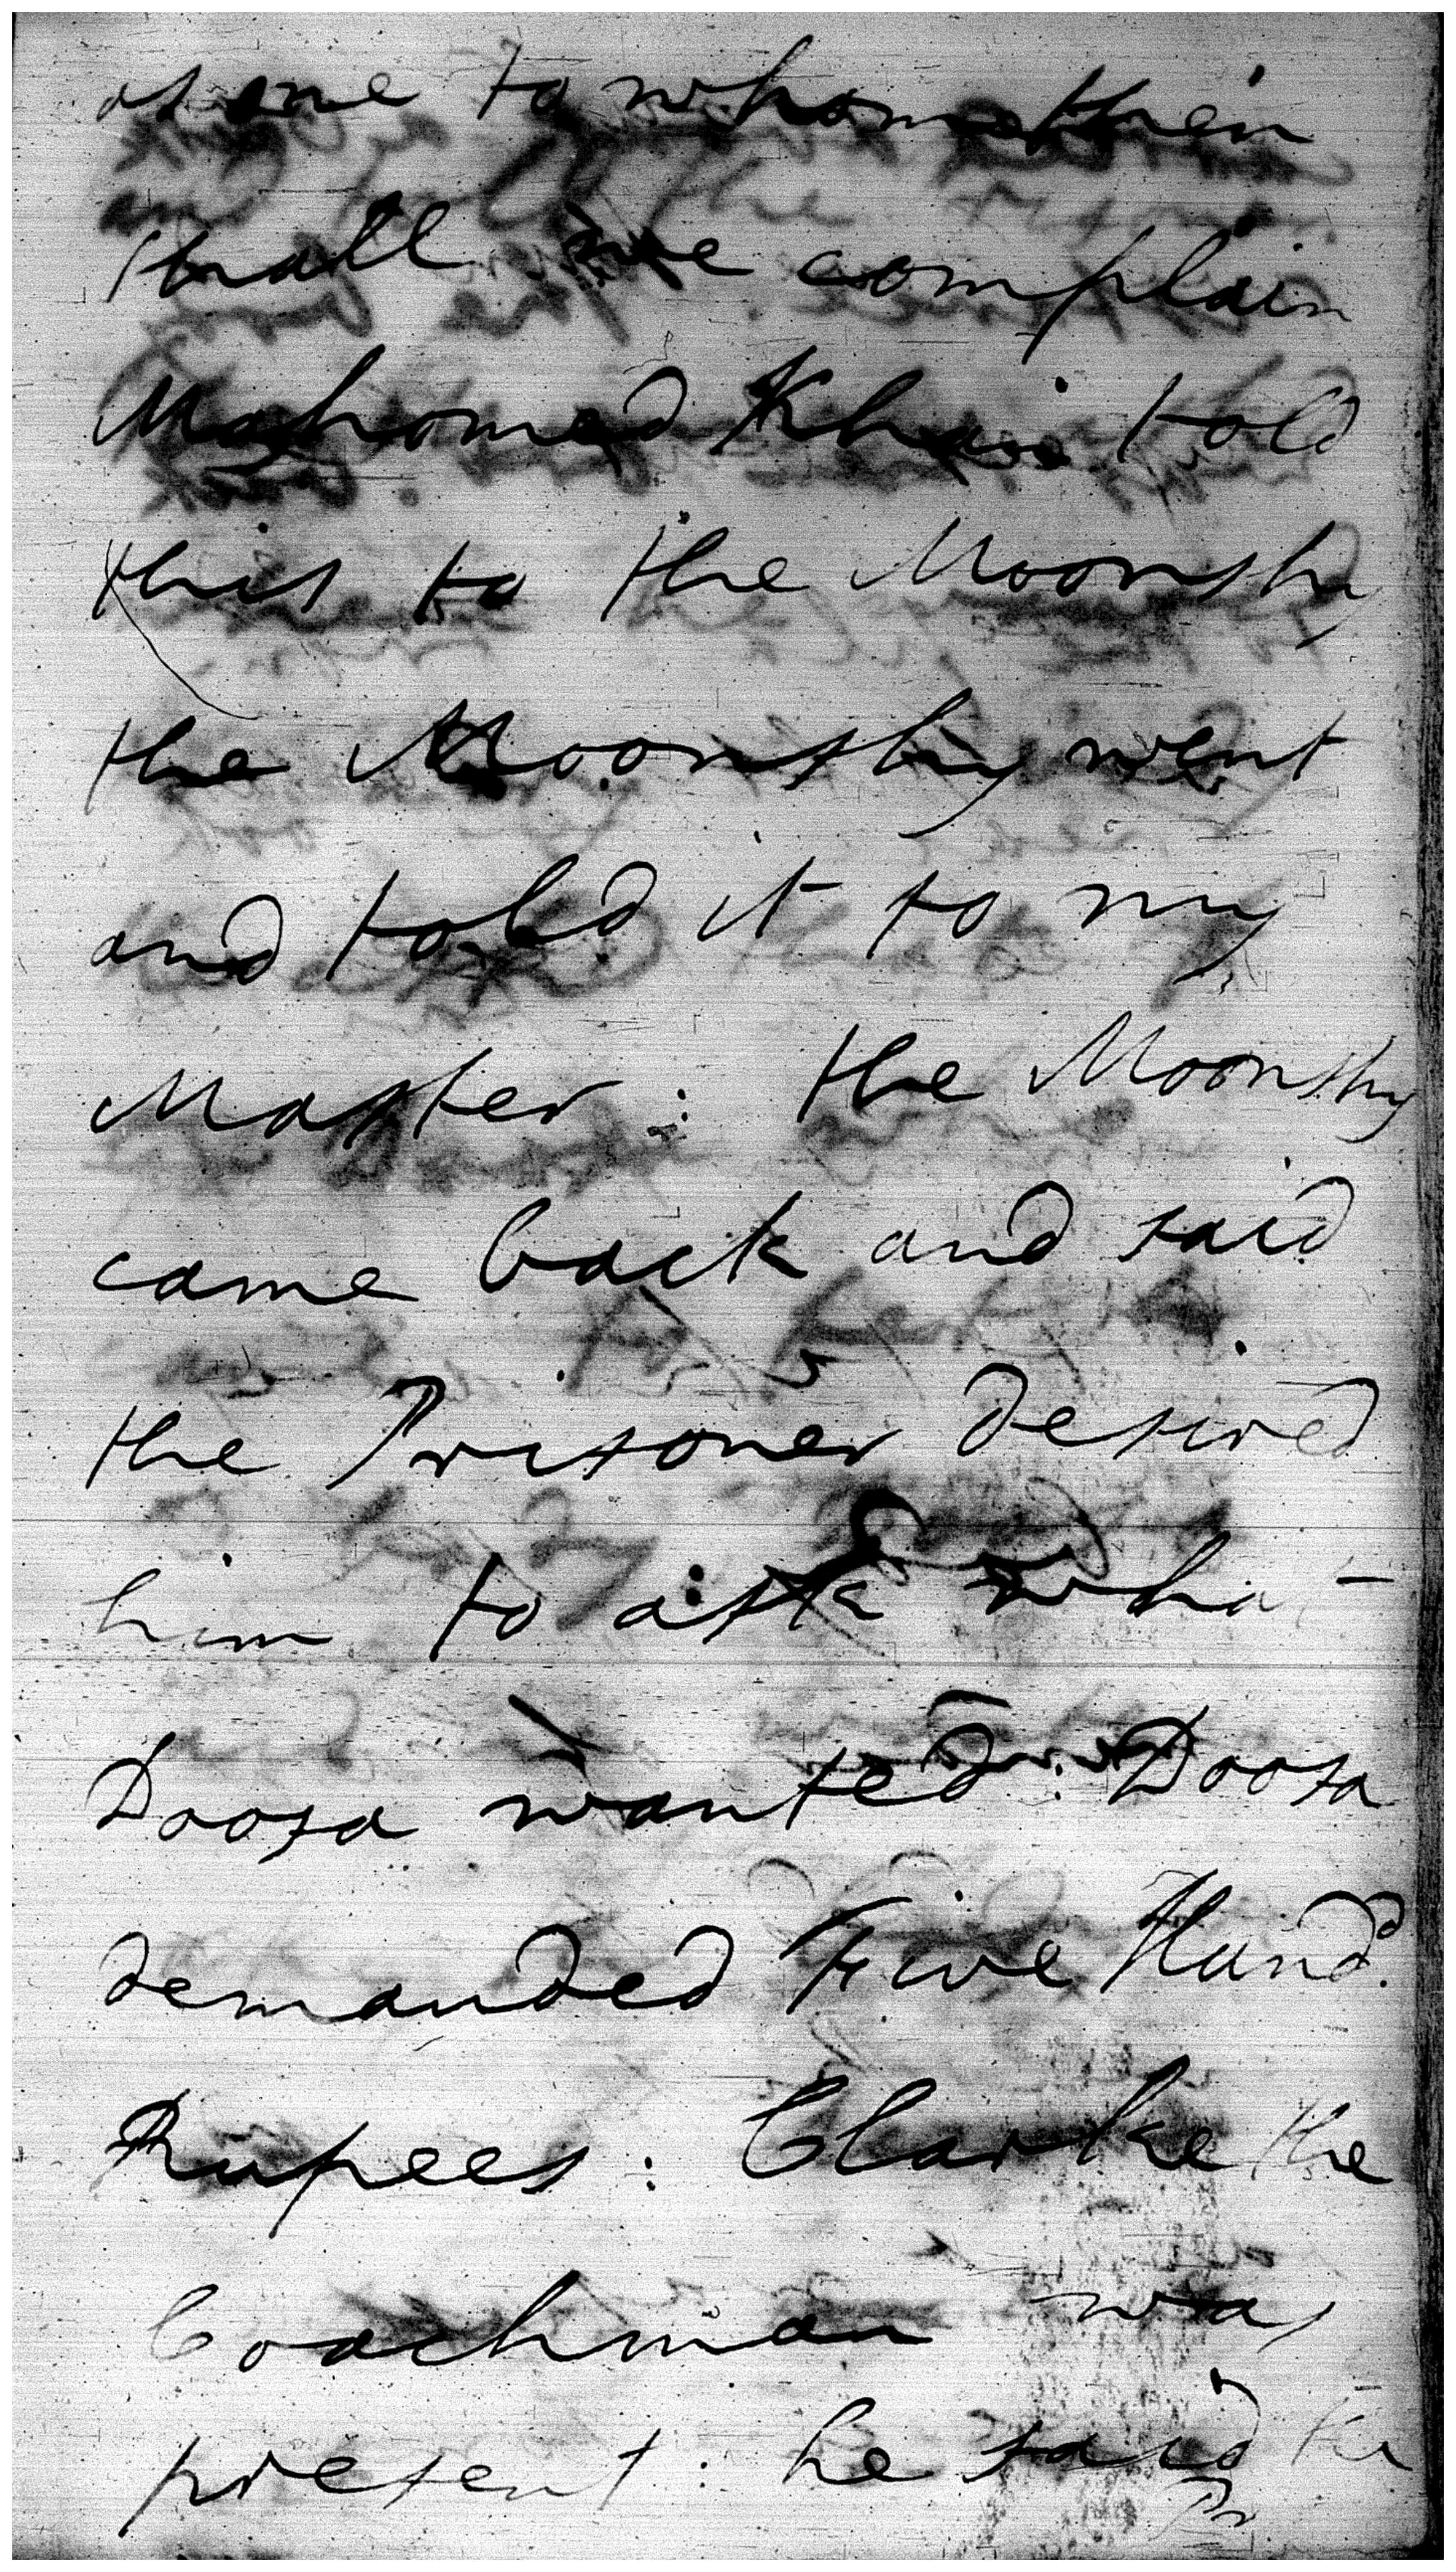 at me to whom then
shall we complain
Mahomed Khan told
this to the Moonshy
the Moonshy went
and told it to my
Master : the Moonshy
came back and said
the Prisoner desired
him to ask what
Doosa wanted : Doosa
demanded Five Hund.d
Rupees : Clarke the
Coachman was
present : he said the
Pr